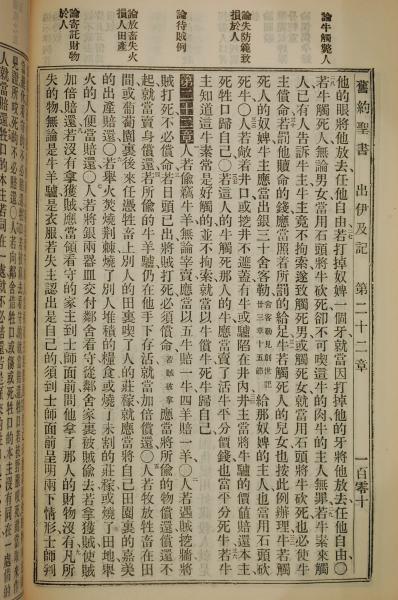 論牛觸斃人
論失防範致
損於人
論待賊例
論放畜失火
損人田產
論寄託財物
於人
舊約聖書 出伊及記 第二十二章 一百零十
他的眼將他放去任他自由若打掉奴婢一個牙就當因打掉他的牙將他放去任他自由〇
若牛觸死人無論男女當用石頭將牛砍死卻不可喫這牛的肉牛的主人無罪若牛素來觸
人已有人告訴牛主牛主竟不拘索遂致觸死男或觸死女就當用石頭將牛砍死也必使牛
主償命若罰他贖命的錢應當照着所罰的給足牛若觸死人的兒女也按此例辦理牛若觸
死人的奴婢牛主應當出銀三十舍客勒舍客勒見創世記廿三章十五節給那奴婢的主人也當用石頭砍
死牛〇人若敞着井口或挖井不遮蓋有牛或驢陷在井內井主當將牛驢的價值賠還本主
死牲口歸自己〇若這人的牛觸死那人的牛應當賣了活牛平分價錢也當平分死牛若牛
主知道這牛素常是好觸的並不拘索就當以牛償牛死牛歸自己
第二十二章人若偷竊牛羊無論宰賣應當以五牛賠一牛四羊賠一羊〇人若遇賊挖牆將
賊打死不必償命若日頭已出將賊打死必須償命若賊被拏應當將所偷的物償還償還不
起就當賣身償還若所偷的牛羊驢仍在他手下存活就當加倍償還〇人若牧放牲畜在田
間或葡萄園裏後來任憑牲畜上別人的田裏喫了人的莊稼就應當將自己田園裏的嘉美
的出產賠還〇若舉火焚燒荊棘燒了別人堆積的糧食或燒了未割的莊稼或燒了田地舉
火的人便當賠還〇人若將銀兩器皿交付鄰舍看守從鄰舍家裏被賊偷去若拿獲賊使賊
加倍賠還若沒有拿獲賊應當領看守的家主到士師面前問他拿了那人的財物沒有凡所
失的物無論是牛羊驢是衣服若失主認出是自己的須到士師面前呈明兩下情形士師判